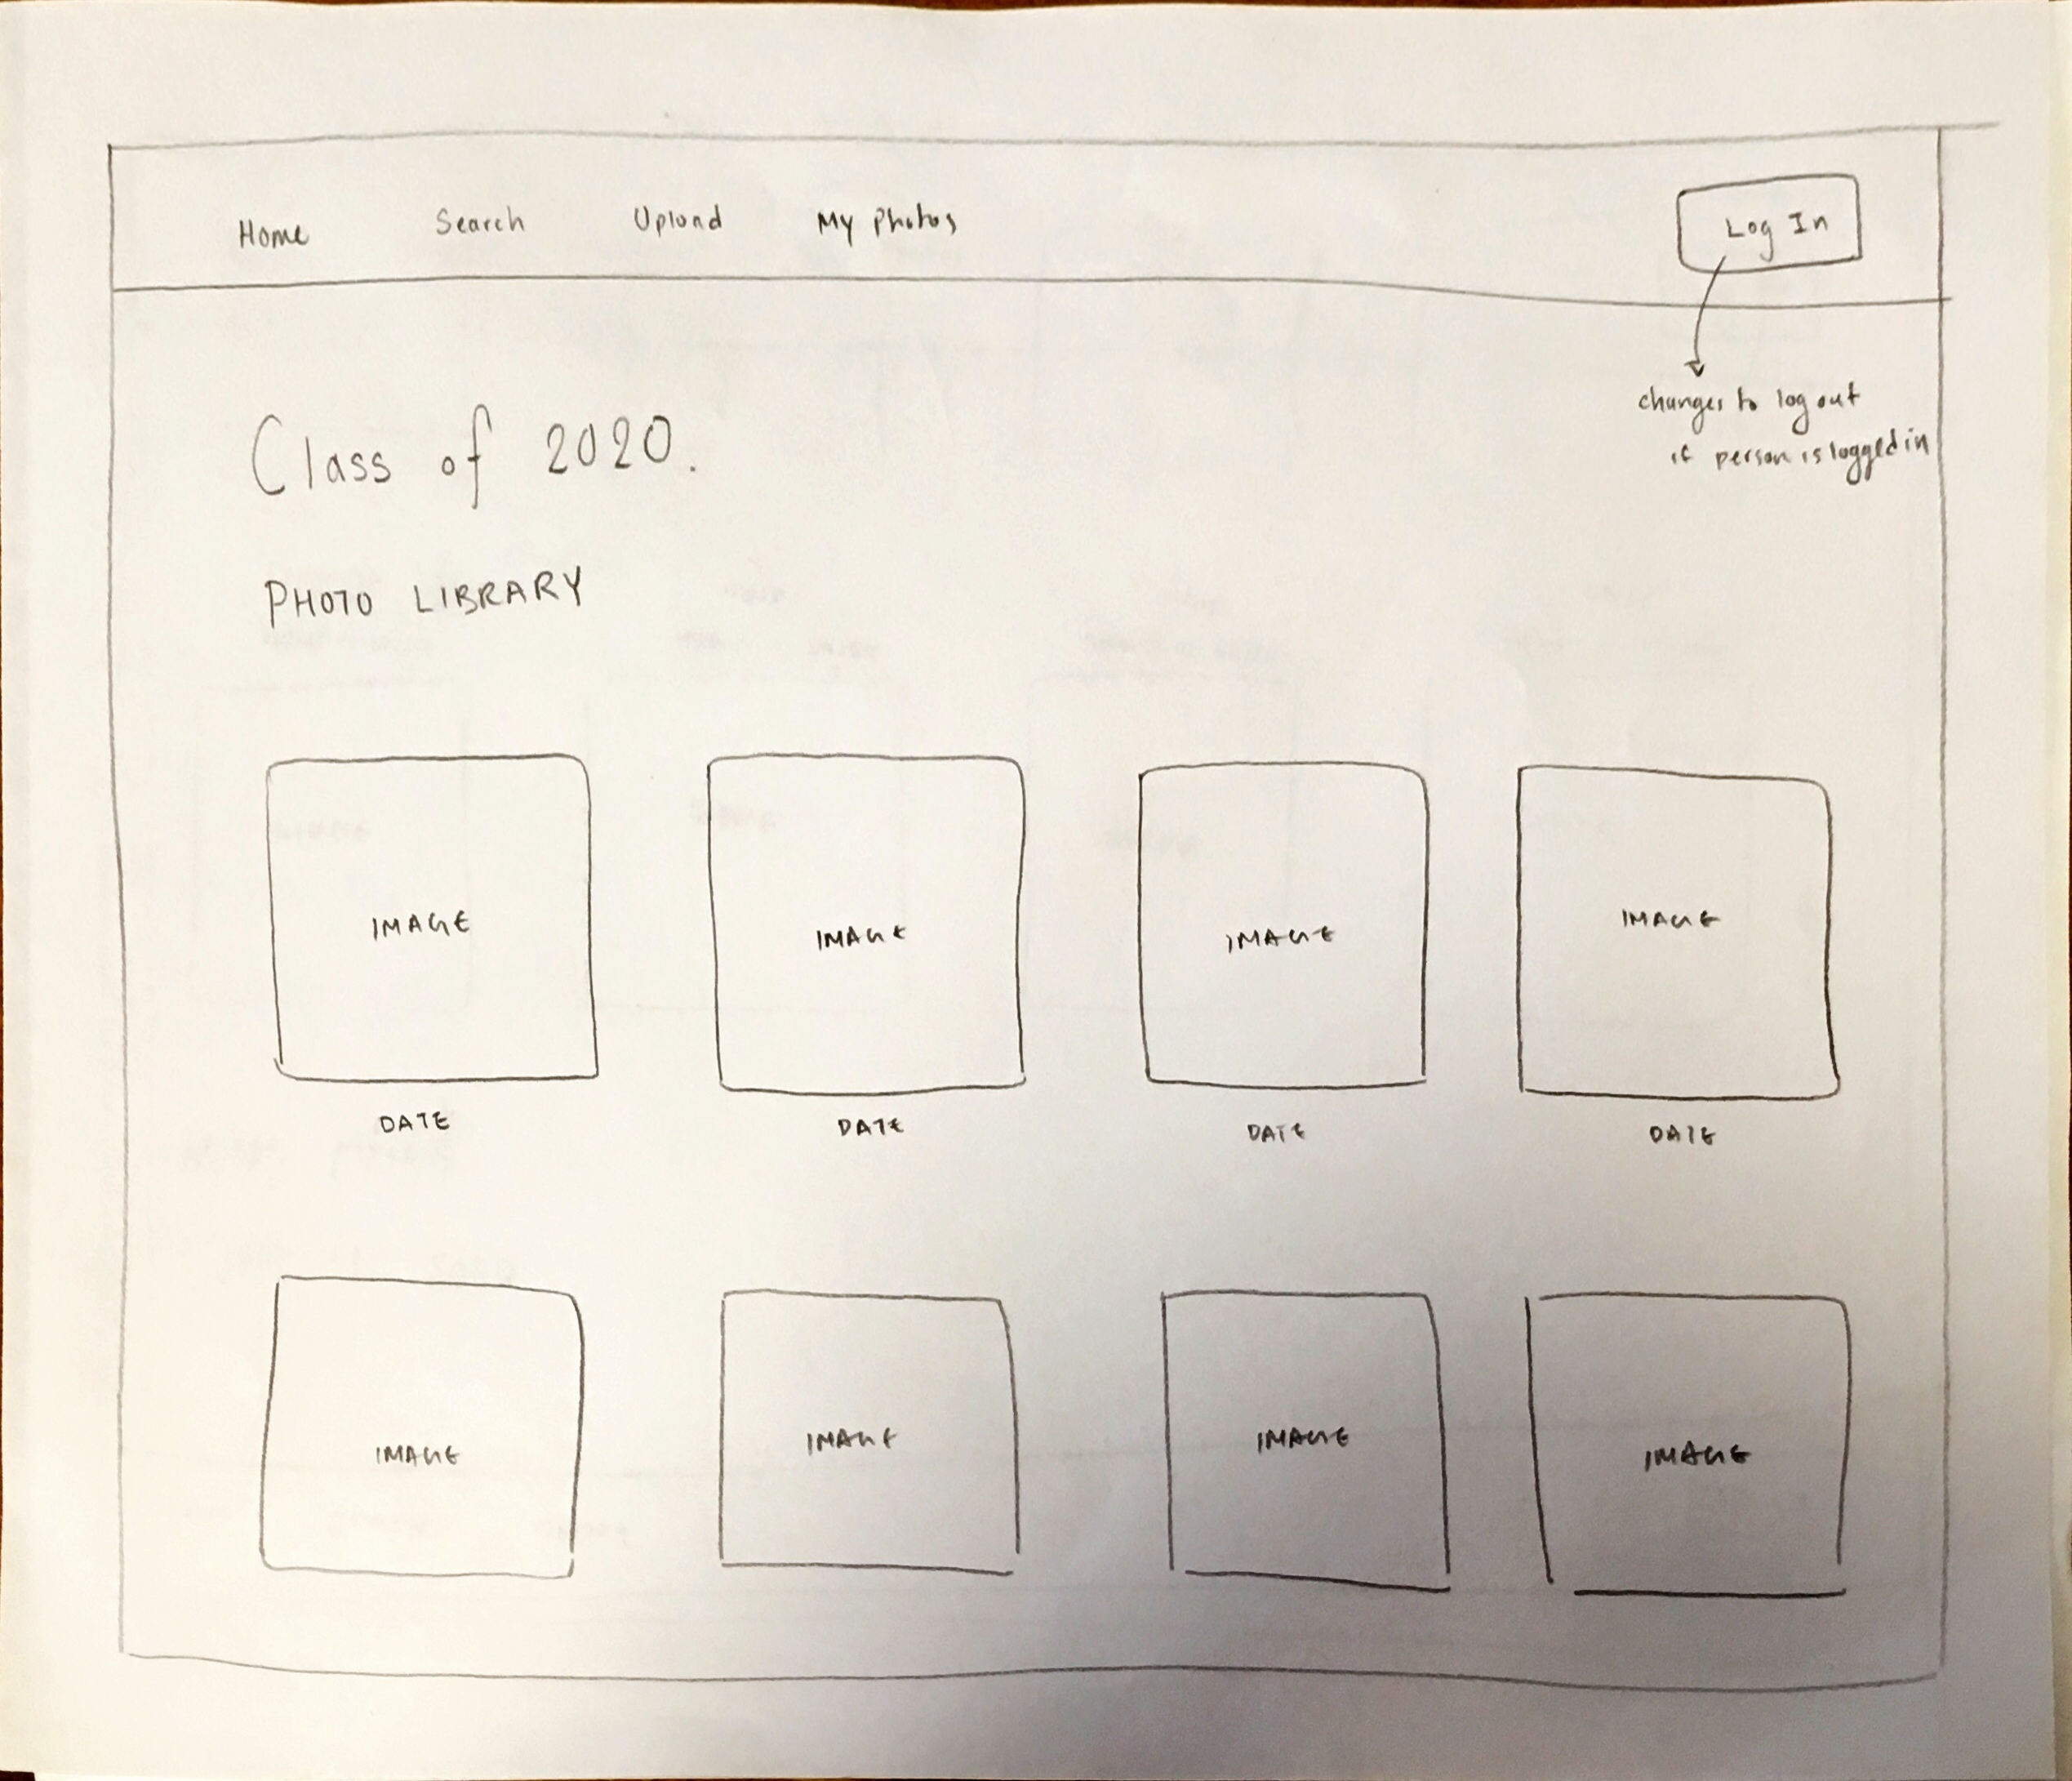 Home Search Upload My Photos Log In
changes to log out
if person is logged in
Class of 2020.
PHOTO LIBRARY
IMAGE IMAGE IMAGE IMAGE
DATE DATE DATE DATE
IMAGE IMAGE IMAGE IMAGE